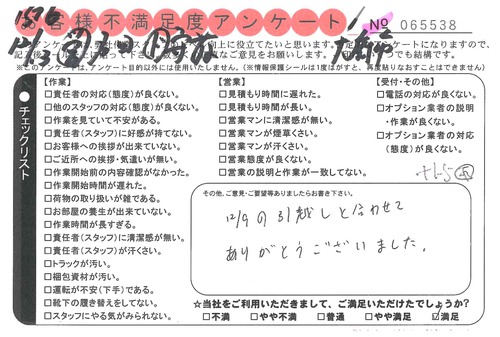 お客様不満足度アンケート
No 065538
【作業】
□責任者の対応(態度)が良くない。
□他のスタッフの対応(態度)が良くない。
□作業を見ていて不安がある。
□責任者(スタッフ)に好感が持てない。
□お客様への挨拶が出来ていない。
□ご近所への挨拶・気遣いが無い。
□作業開始前の内容確認がなかった。
□作業開始時間が遅れた。
□荷物の取り扱いが雑である。
□お部屋の養生が出来ていない。
□作業時間が長すぎる。
□責任者(スタッフ)に清潔感が無い。
□責任者(スタッフ)が汗くさい。
□トラックが汚い。
□梱包資材が汚い。
□運転が不安(下手)である。
□靴下の履き替えをしてない。
□スタッフにやる気がみられない。
【営業】
□見積もり時間に遅れた。
□見積もり時間が長い。
□営業マンに清潔感が無い。
□営業マンが煙草くさい。
□営業マンが汗くさい。
□営業態度が良くない。
□営業の説明と作業が一致してない。
【受付・その他】
□電話の対応が良くない。
□オプション業者の説明
・作業が良くない。
□オプション業者の対応
(態度)が良くない。
チェックリスト
その他、ご意見・ご要望等ありましたらお書き下さい。
12/9の引越しと合わせて
ありがとうございました。
☆当社をご利用いただきまして、ご満足いただけたでしょうか?
□不満 □やや不満 □普通 □やや満足 ☑満足